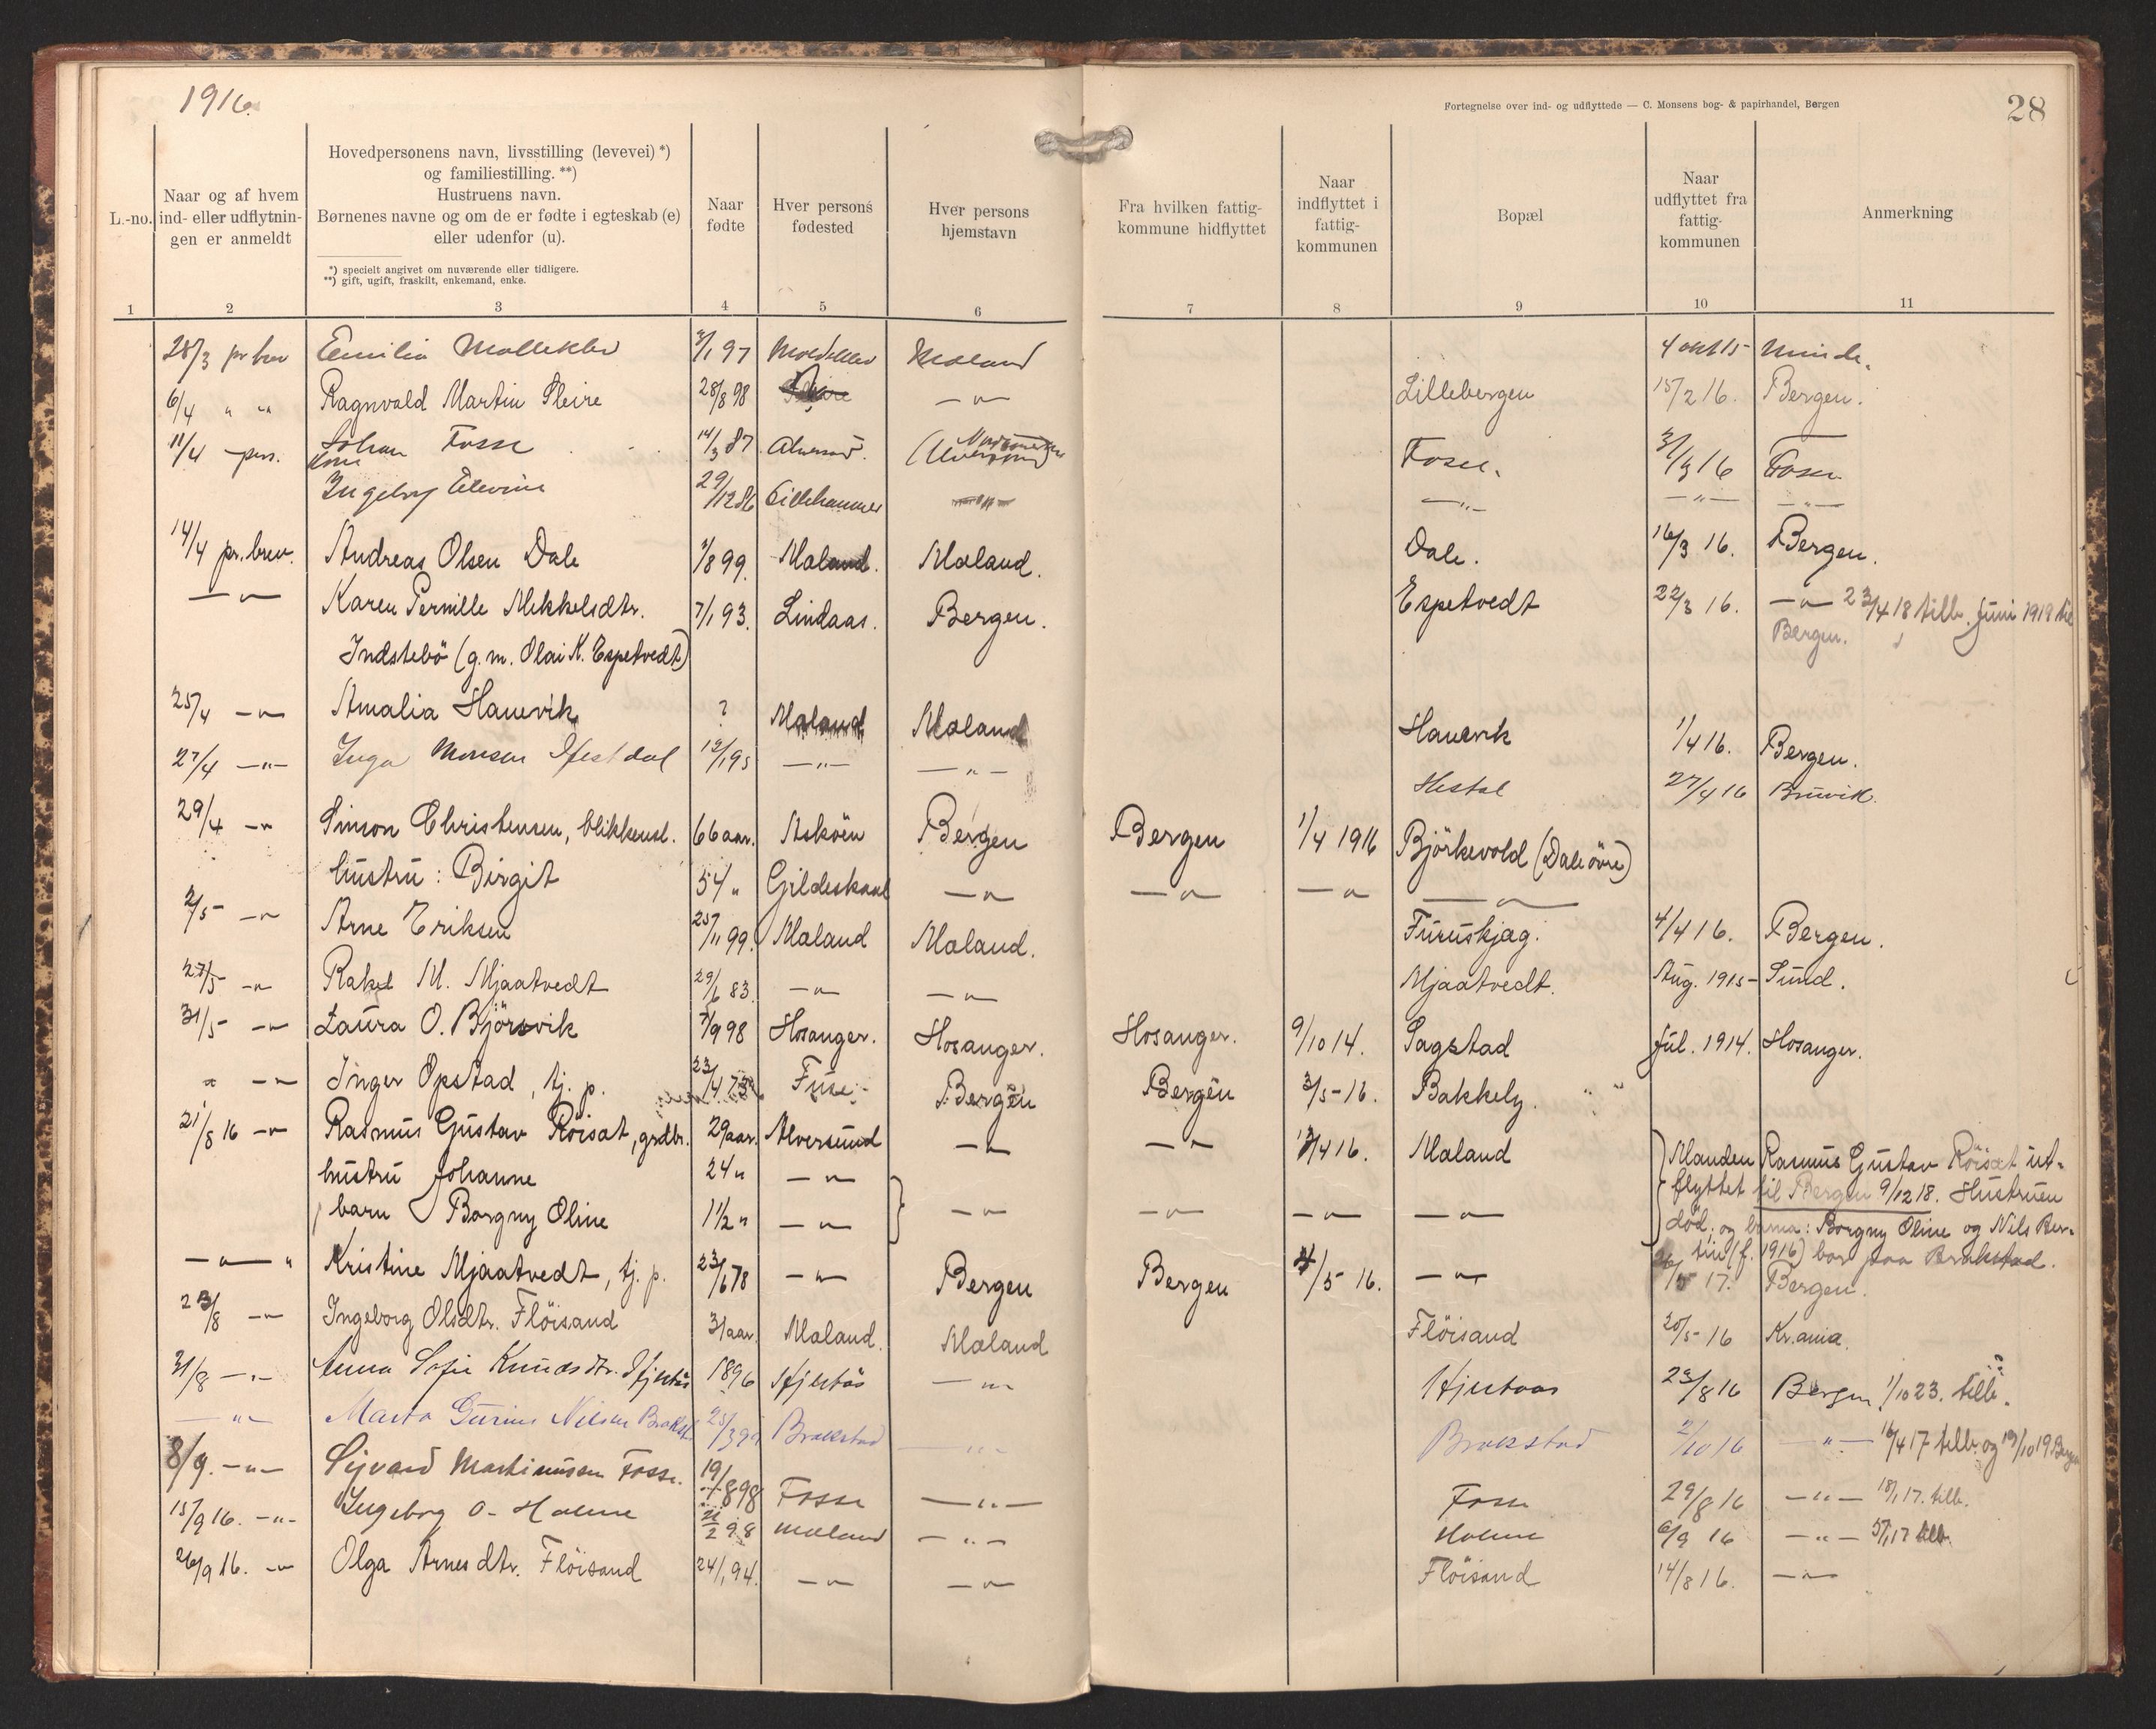 1916.
Fortegnelse over ind- og udflyttede — C. Monsens bog- & papirhandel, Bergen
28
L.-no.
Naar og af hvem ind- eller udflytnin- gen er anmeldt
Hovedpersonens navn, livsstilling (levevei) *)
og familiestilling. **)
Hustruens navn.
Børnenes navne og om de er fødte i egteskab (e)
eller udenfor (u).
*) specielt angivet om nuværende eller tidligere.
**) gift, ugift, fraskilt, enkemand, enke.
Naar fødte
Hver persons fødested
Hver persons hjemstavn
Fra hvilken fattig- kommune hidflyttet
Naar indflyttet i fattig- kommunen
Bopæl
Naar udflyttet fra fattig- kommunen
Anmerkning
1 2 3 4 5 6 7 8 9 10 11
28/3 pr brev Emilia Mollekler 97 Mæland 4 okt 15 Minde.
6/4 " " Ragnvald Martin Fleire 28/8 98 — " — Lillebergen 15/2 16. Bergen.
11/4 pers. Johan Fosse 14/3 87 Alversund. (Alversund) Fosse. 3/3 16 Fosse
kone
Ingeborg Elevine 29/12 86 Lillehammer — " — — " — — " —
14/4 pr. brev. Andreas Olsen Dale 1/8 99. Mæland. Mæland. Dale. 16/3 16. Bergen.
— " — Karen Pernille Mikkelsdtr. 7/1 93. Lindaas. Bergen. Espetvedt 22/3 16. — " — 23/4 18 tilb. Juni 1919 til
Indstebö (g. m. Olai K. Espetvedt) Bergen.
25/4 — " — Amalia Hanevik ? Mæland Mæland Hanevik 1/4 16. Bergen.
27/4 — " — Inga Monsen Hestdal 12/1 95 — " — — " — Hestal 27/4 16 Bruvik.
29/4 — " Simon Christensen, blikkensl. 66 aar. Askøen Bergen Bergen 1/4 1916 Björkevold (Dale övre)
hustru : Birgit 54 " Gildeskaal — " — — " — — " — " —
2/5 — " Arne Eriksen 25/11 99. Mæland Mæland. Furuskjæg. 4/4 16. Bergen.
27/5 — " Rakel M. Mjaatvedt 29/6 83. — " — — " — Mjaatvedt. Aug. 1915 — Sund.
31/5 — " Laura O. Björsvik 7/9 98 Hosanger. Hosanger. Hosanger. 9/10 14. Sagstad Jul. 1914. Hosanger.
" — " Inger Opstad, tj. p. 23/4 73 Fuse. Bergen Bergen 3/5 16. Bakkely.
21/8 16 — " Rasmus Gustav Röisat, grdbr. 29 aar. Alversund — " — — " — /4 16. Mæland Manden Rasmus Gustav Röisæt ut-
hustru Johanne 24 " — " — flyttet til Bergen 9/12 18. Hustruen
barn Borgny Oline 1½ " — " — — " — — " — — " — — " — död; og barna: Borgny Oline og Nils Ber-
tin (f. 1916) bor paa Brakstad.
— " — " Kristine Mjaatvedt, tj. p. 23/6 78 — " — Bergen Bergen 4/5 16. — " — 17. Bergen.
23/8 — " Ingeborg Olsdtr. Flöisand 31 aar. Mæland. Mæland Flöisand 20/5 16 Kr.ania.
31/8 — " — Anna Sofie Knudsdtr. Hjertås 1896 Hjertås — " — Hjertaas 23/8 16 Bergen 1/10 23. tilb.
— " — Marta Gurine Nilsen Brakst. 25/3 Brakstad — " — Brakstad 2/10 16 — " — 16/4 17 tilb. og 19/10 19 Bergen
8/9. — " — Sigvard Martinussen Fosse. 19/ 98 Fosse — " — Fosse 29/8 16 — " — 18/1 17. tilb.
15/9 16. — " — Ingeborg O. Holme 21/2 98 Mæland — " — Holme 6/9 16 — " — 5/1 17 tilb.
26/9 16. — " Olga Arnesdtr. Flöisand 24/1 94. — " — — " — Flöisand 14/8 16. — " —